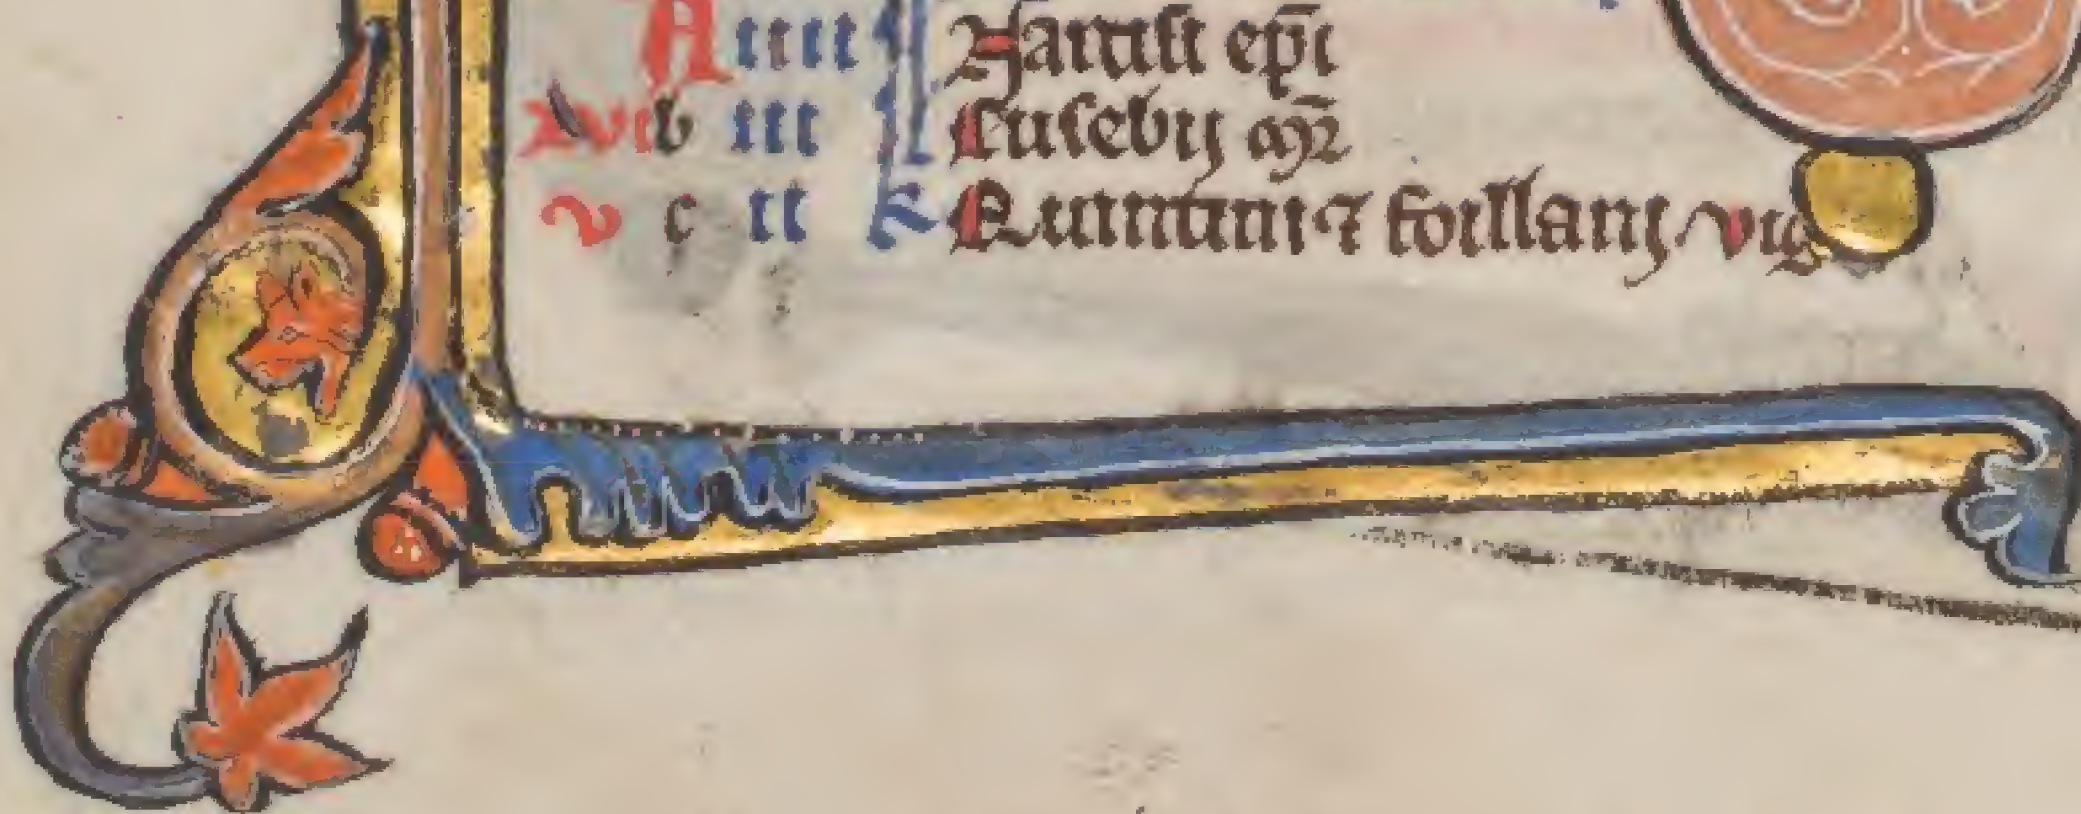 A iiii kl Narcisi ep̄i
xvi b iii kl Eusebij m̄r
v c ii k Quintini ⁊ foillani vig